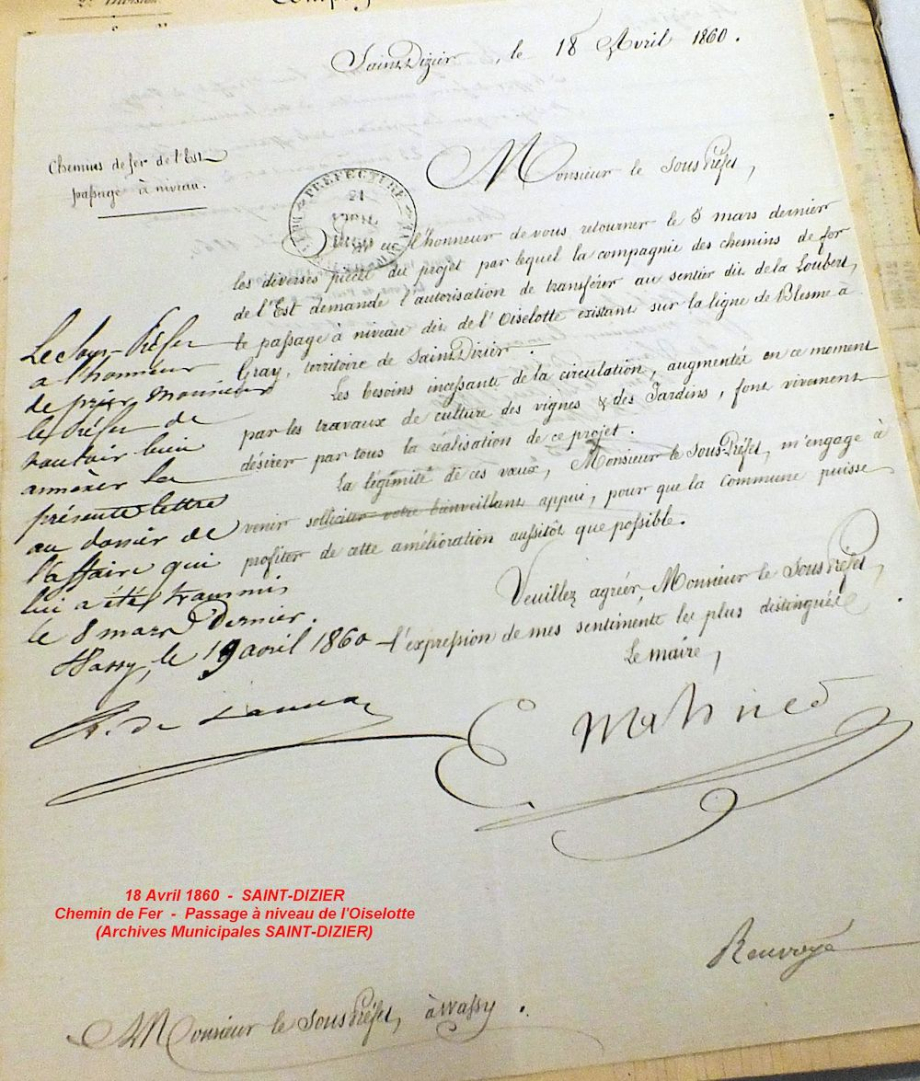 Saint-Dizier, le 18 Avril 1860.
Chemins de fer de l'Est
passage à niveau.
Monsieur le Sous Préfet,
PRÉFECTURE
J'ai eu l'honneur de vous retourner le 8 mars dernier
les diverses pièces du projet par lequel la compagnie des chemins de fer
de l'Est demande l'autorisation de transférer au sentier dit de la Loubert,
le passage à niveau dit de l'Oiselotte existant sur la ligne de Blesme à
Gray, territoire de Saint-Dizier.
Les besoins incessants de la circulation, augmentés en ce moment
par les travaux de culture des vignes & des Jardins, font vivement
désirer par tous la réalisation de ce projet.
La légimité de ces vœux, Monsieur le Sous-Préfet, m'engage à
venir solliciter votre bienveillant appui, pour que la commune puisse
profiter de cette amélioration aussitôt que possible.
Veuillez agréer, Monsieur le Sous Préfet,
l'expression de mes sentiments les plus distingués.
Le maire,
Le Sous-Préfet
a l'honneur
de prier Monsieur
le Préfet de
vouloir bien
annexer la
présente lettre
au dossier de
l'affaire qui
lui a été transmis
le 8 mars Dernier.
Wassy, le 19 avril 1860
18 Avril 1860 - SAINT-DIZIER
Chemin de Fer - Passage à niveau de l'Oiselotte
(Archives Municipales SAINT-DIZIER)
Renvoyé
Monsieur le Sous Préfet, à Wassy.